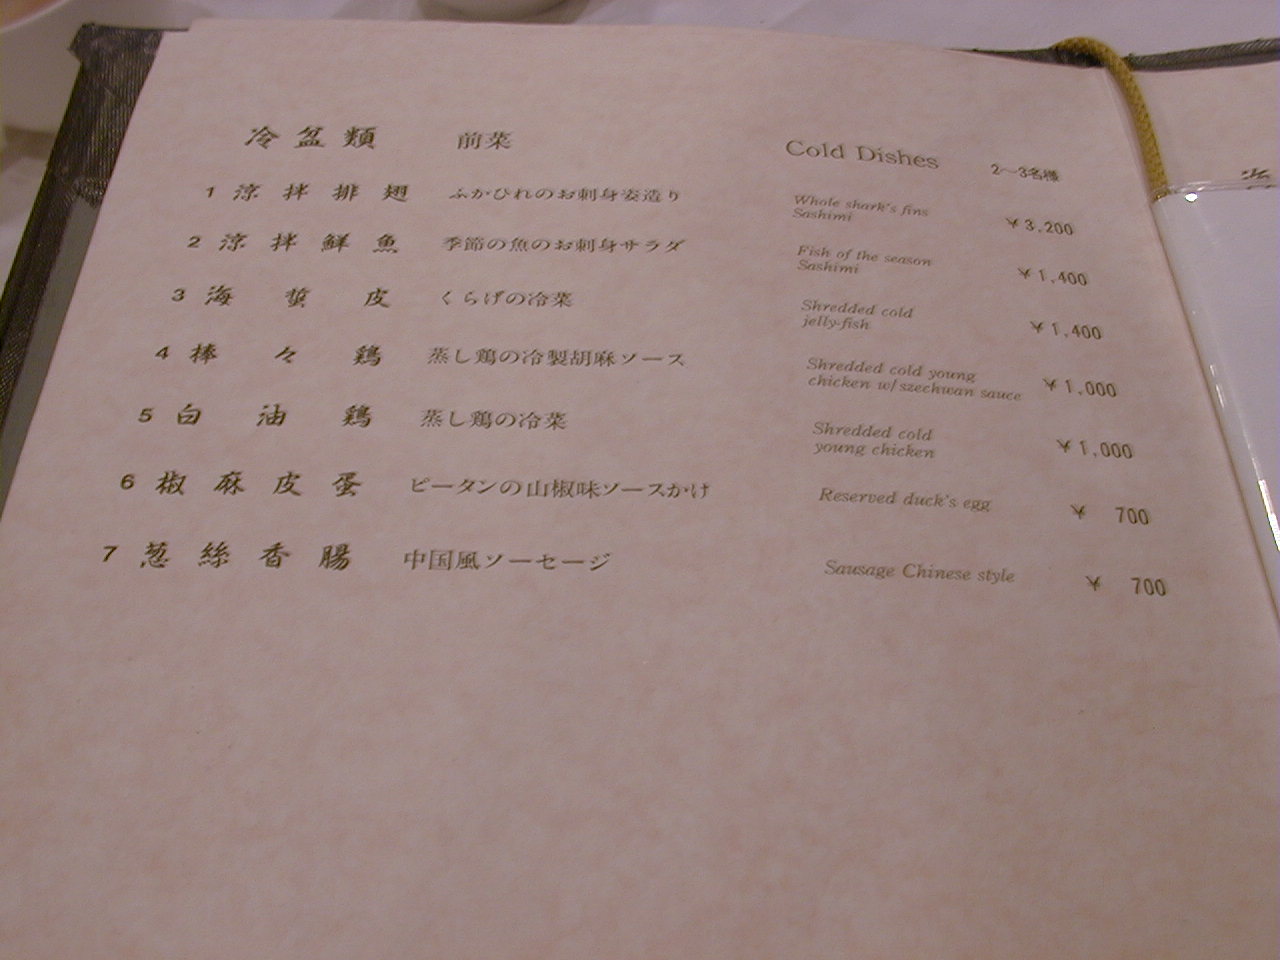 冷盆類 前菜 Cold Dishes 2～3名様
1 涼拌排翅 ふかひれのお刺身姿造り Whole shark's fins Sashimi ￥3,200
2 涼拌鮮魚 季節の魚のお刺身サラダ Fish of the season Sashimi ￥1,400
3 海蜇皮 くらげの冷菜 Shredded cold jelly-fish ￥1,400
4 棒々鶏 蒸し鶏の冷製胡麻ソース Shredded cold young chicken w/szechwan sauce ￥1,000
5 白油鶏 蒸し鶏の冷菜 Shredded cold young chicken ￥1,000
6 椒麻皮蛋 ピータンの山椒味ソースかけ Reserved duck's egg ￥ 700
7 葱絲香腸 中国風ソーセージ Sausage Chinese style ￥ 700